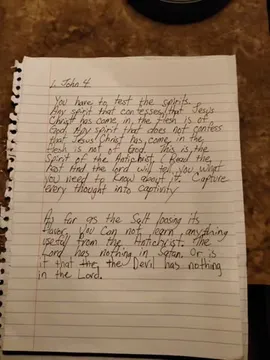 1. John 4
You have to test the spirits.
Any spirit that confesses that Jesus
Christ has come, in the flesh is of
God. Any spirit that does not confess
that Jesus Christ has come in the
flesh is not of God. This is the
Spirit of the Antichrist. (Read the
Rest And the Lord will tell you what
you need to know about it. Capture
every thought into captivity
As far as the Salt loosing its
flavor, You Can not learn anything
useful from the Antichrist. The
Lord has nothing in Satan. Or is
it that the the Devil has nothing
in the Lord.